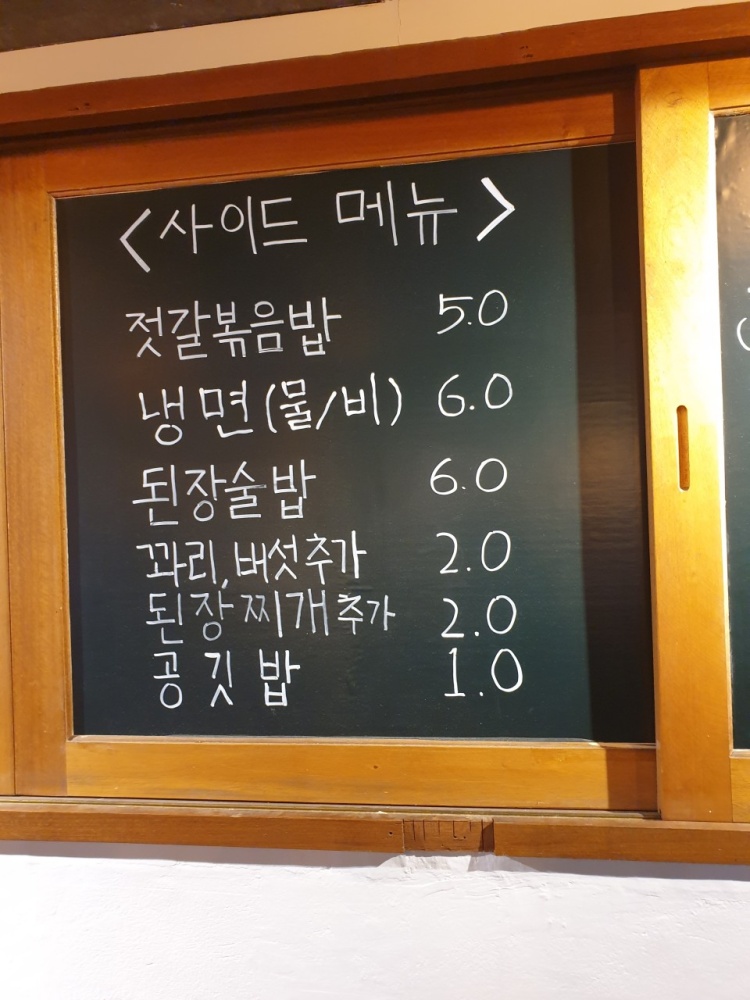 <사이드 메뉴>
젓갈볶음밥 5.0
냉면(물/비) 6.0
된장술밥 6.0
꽈리,버섯추가 2.0
된장찌개추가 2.0
공깃밥 1.0